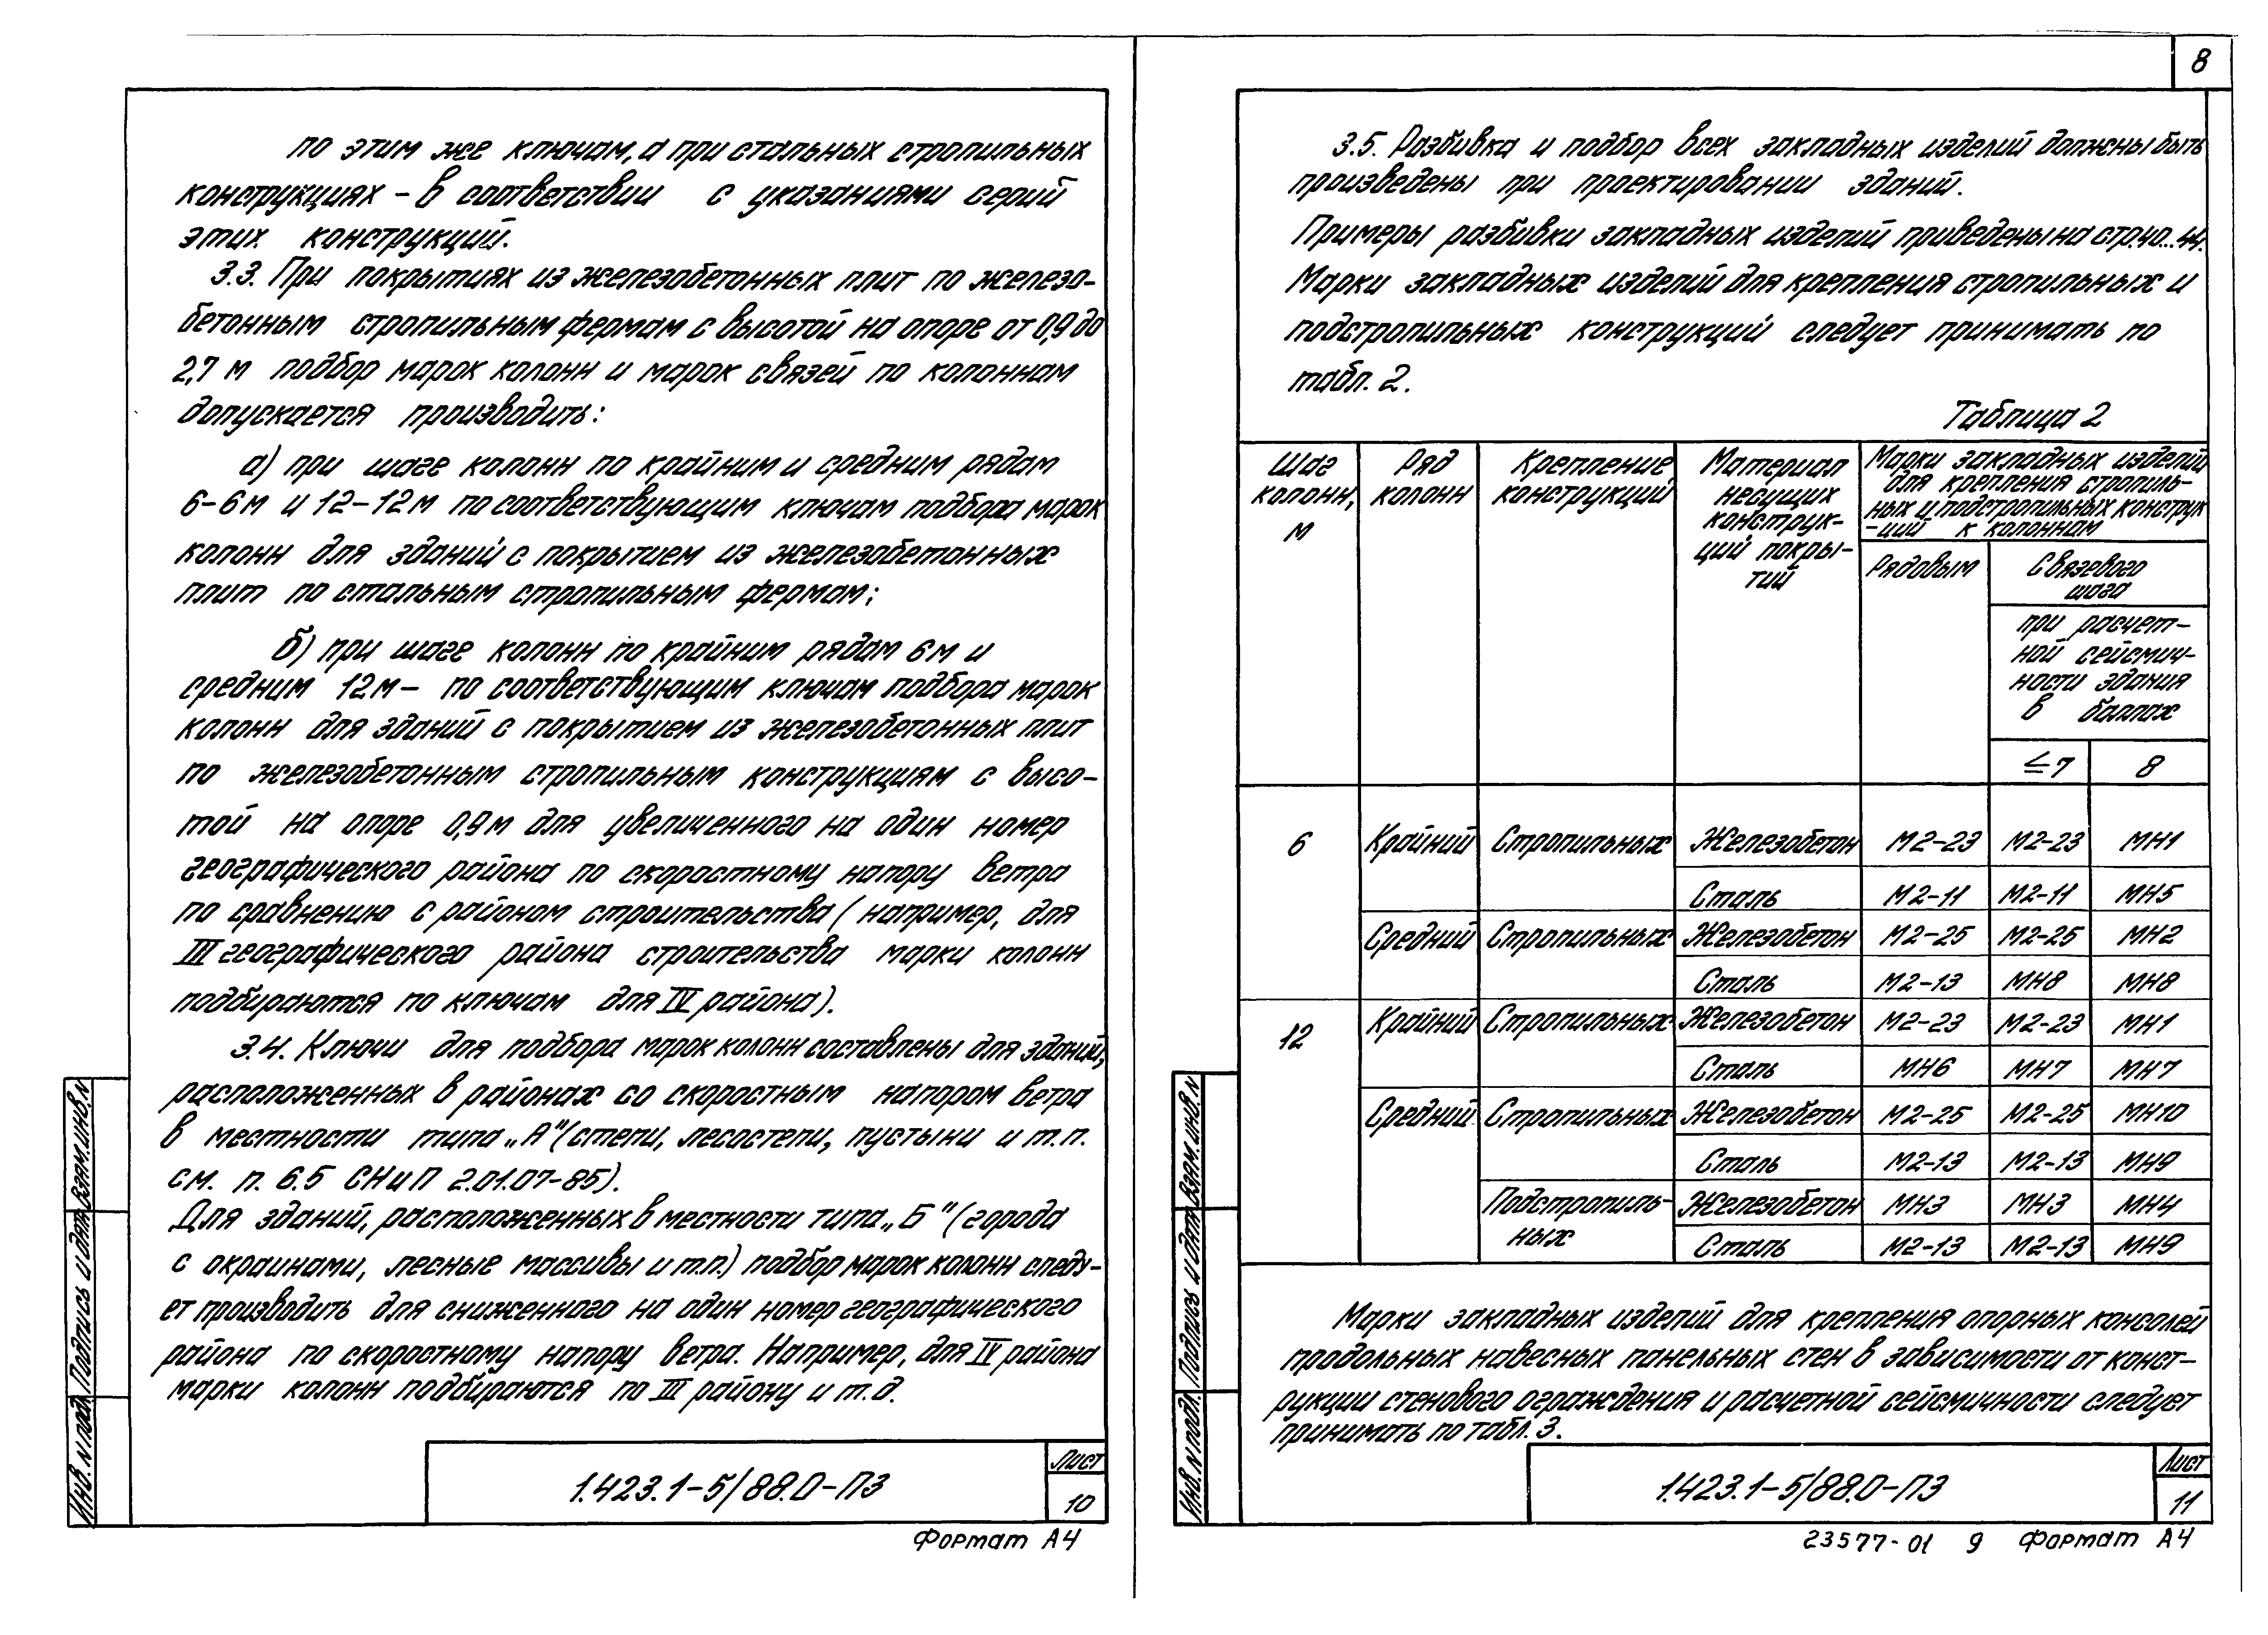 по этим же ключам, а при стальных стропильных
конструкциях – в соответствии с указаниями серий
этих конструкций.
3.3. При покрытиях из железобетонных плит по железо-
бетонным стропильным фермам с высотой на опоре от 0,9 до
2,7 м подбор марок колонн и марок связей по колоннам
допускается производить:
а) при шаге колонн по крайним и средним рядам
6-6м и 12-12м по соответствующим ключам подбора марок
колонн для зданий с покрытием из железобетонных
плит по стальным стропильным фермам;
б) при шаге колонн по крайним рядам 6м и
средним 12м – по соответствующим ключам подбора марок
колонн для зданий с покрытием из железобетонных плит
по железобетонным стропильным конструкциям с высо-
той на опоре 0,9м для увеличенного на один номер
географического района по скоростному напору ветра
по сравнению с районом строительства (например, для
III географического района строительства марки колонн
подбираются по ключам для IV района).
3.4. Ключи для подбора марок колонн составлены для зданий,
расположенных в районах со скоростным напором ветра
в местности типа „А" (степи, лесостепи, пустыни и т.п.
см. п. 6.5 СНиП 2.01.07-85).
Для зданий, расположенных в местности типа „Б" (города
с окраинами, лесные массивы и т.п.) подбор марок колонн следу-
ет производить для сниженного на один номер географического
района по скоростному напору ветра. Например, для IV района
марки колонн подбираются по III району и т.д.
Инв. N подл. Подпись и дата Взам. инв. N
1.423.1-5/88.0-ПЗ
Лист
10
Формат А4
8
3.5. Разбивка и подбор всех закладных изделий должены быть
произведены при проектировании зданий.
Примеры разбивки закладных изделий приведены на стр.40...44.
Марки закладных изделий для крепления стропильных и
подстропильных конструкций следует принимать по
табл. 2.
Таблица 2
Шаг колонн, м
Ряд колонн
Крепление конструкций
Материал несущих конструк-ций покры-тий
Марки закладных изделий
для крепления стропиль-
ных и подстропильных конструк
-ций к колоннам
Рядовым
Связевого шага
при расчет-
ной сейсмич-
ности здания
в баллах
≤7 8
6 Крайний Стропильных Железобетон М2-23 М2-23 МН1
Сталь М2-11 М2-11 МН5
Средний Стропильных Железобетон М2-25 М2-25 МН2
Сталь М2-13 МН8 МН8
12 Крайний Стропильных Железобетон М2-23 М2-23 МН1
Сталь МН6 МН7 МН7
Средний Стропильных Железобетон М2-25 М2-25 МН10
Сталь М2-13 М2-13 МН9
Подстропиль- Железобетон МН3 МН3 МН4
ных Сталь М2-13 М2-13 МН9
Марки закладных изделий для крепления опорных консолей
продольных навесных панельных стен в зависимости от конст-
рукции стенового ограждения и расчетной сейсмичности следует
принимать по табл. 3.
Инв. N подл. Подпись и дата Взам. инв. N
1.423.1-5/88.0-ПЗ
Лист
11
23577-01 9 Формат А4